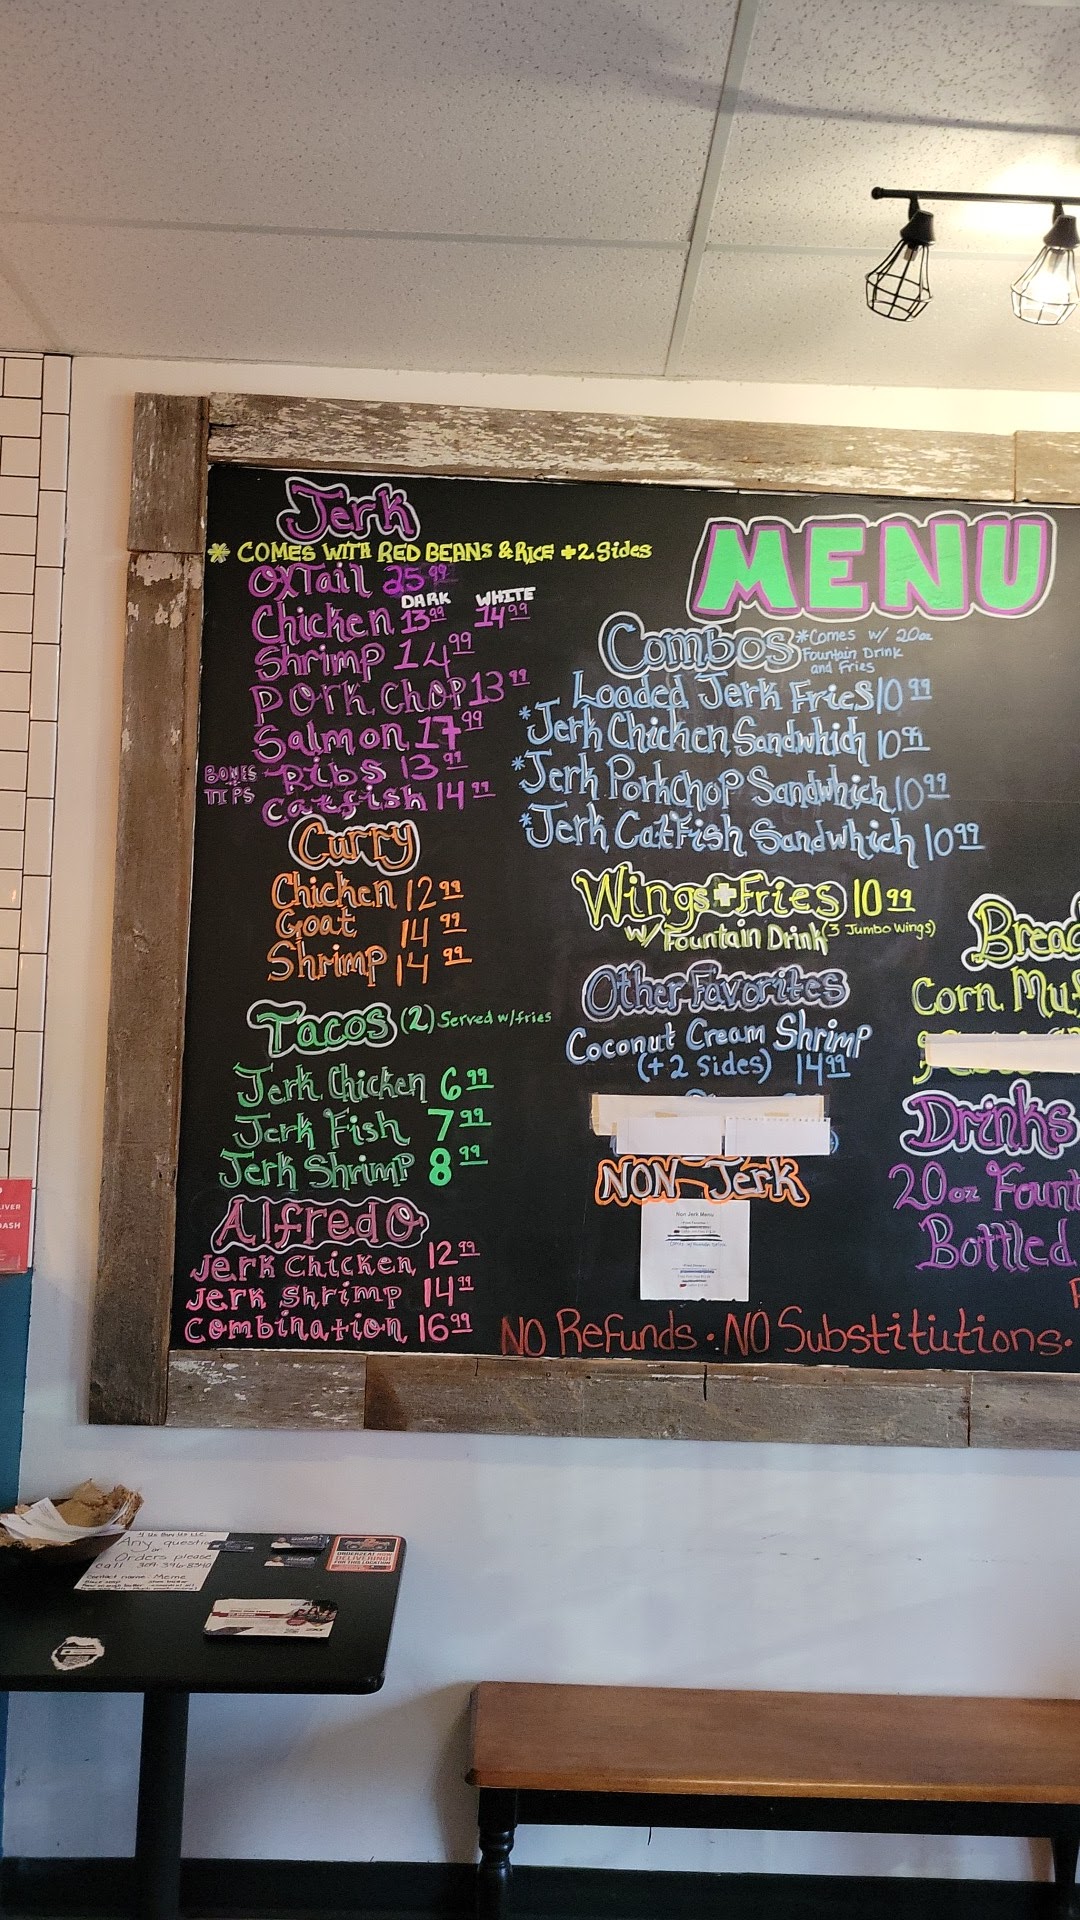 Jerk
* COMES WITH RED BEANS & RICE + 2 Sides
OXTail 25.99
DARK WHITE
Chicken 13.99 14.99
Shrimp 14.99
PORK CHOP 13.99
Salmon 17.99
BONES TIPS
Ribs 13.99
Catfish 14.99
Curry
Chicken 12.99
Goat 14.99
Shrimp 14.99
Tacos (2) Served w/fries
Jerk Chicken 6.99
Jerk Fish 7.99
Jerk Shrimp 8.99
Alfredo
Jerk Chicken 12.99
Jerk Shrimp 14.99
Combination 16.99
MENU
Combos *Comes w/ 20oz
Fountain Drink
and Fries
Loaded Jerk Fries 10.99
*Jerk Chicken Sandwhich 10.99
*Jerk Porkchop Sandwhich 10.99
*Jerk CatFish Sandwhich 10.99
Wings + Fries 10.99
w/ Fountain Drink (3 Jumbo Wings)
Other Favorites
Coconut Cream Shrimp
(+2 Sides) 14.99
NON-Jerk
Non Jerk Menu
Corn
Drinks
20oz
Bottled
NO Refunds • NO Substitutions.
Any
Orders please
call
Contact name: Meme
DELIVERING!
FOR THIS LOCATION